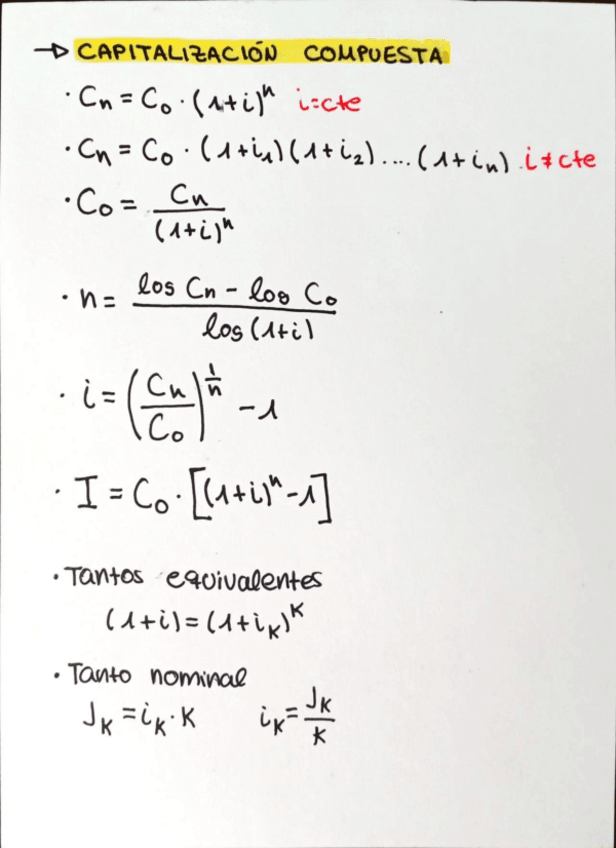 → CAPITALIZACIÓN COMPUESTA
· Cn = C₀ · (1+i)ⁿ i=cte
· Cn = C₀ · (1+i₁)(1+i₂)....(1+iₙ) i≠cte
· C₀ = Cn / (1+i)ⁿ
· n = (log Cn - log C₀) / log(1+i)
· i = (Cn / C₀)^(1/n) - 1
· I = C₀ · [(1+i)ⁿ - 1]
· Tantos equivalentes
(1+i) = (1+i_K)^K
· Tanto nominal
J_K = i_K · K i_K = J_K / K